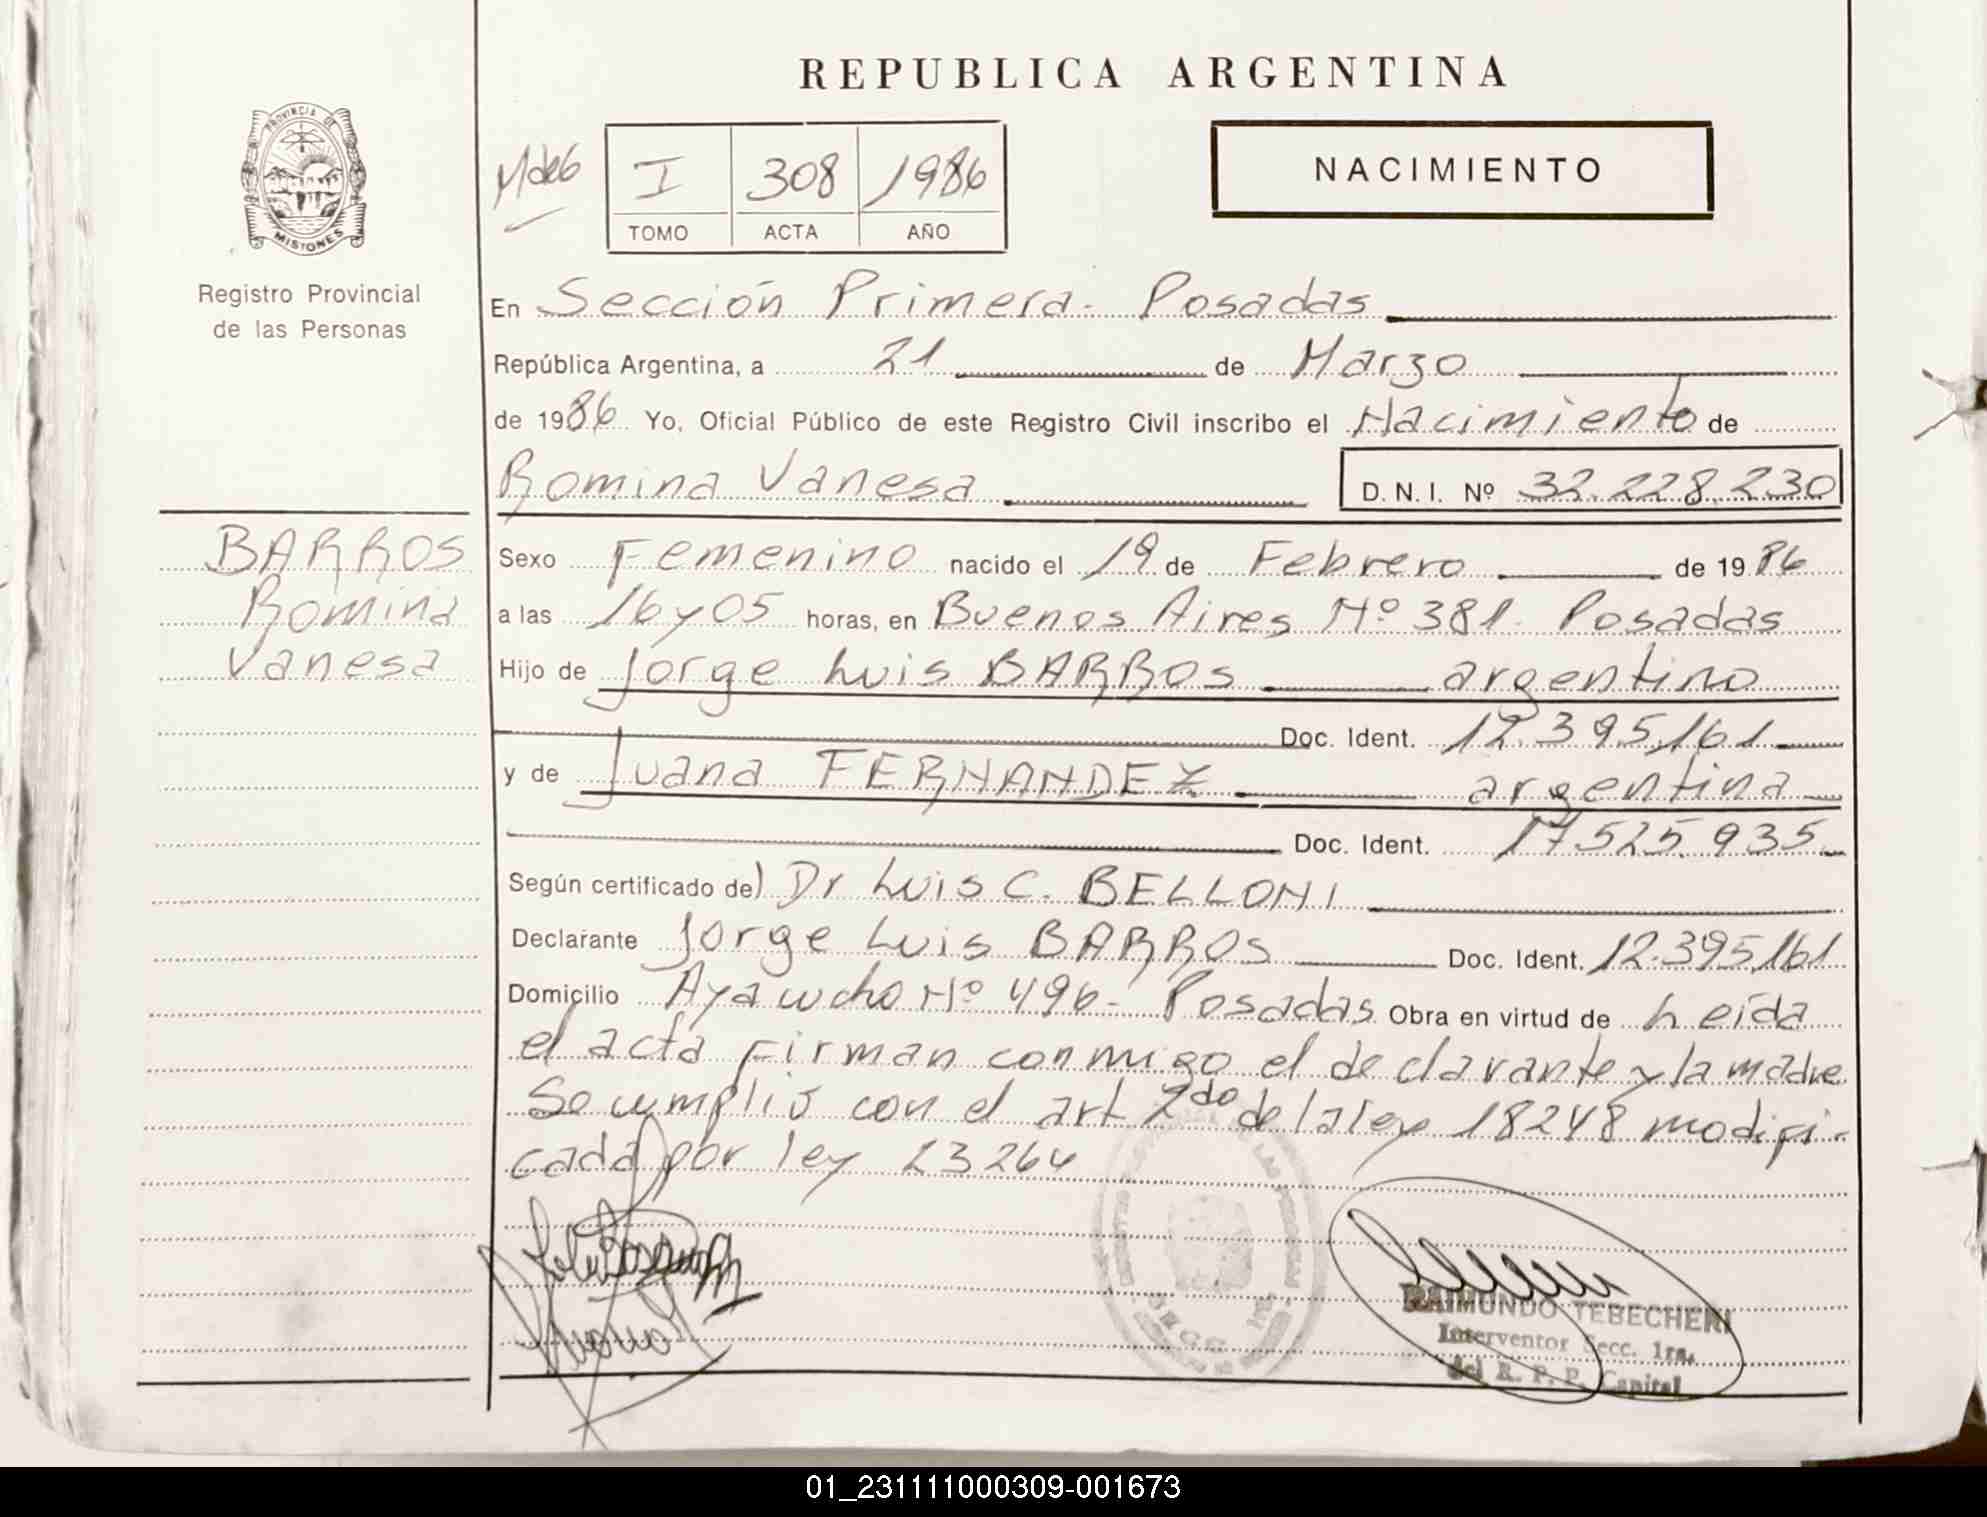 REPUBLICA ARGENTINA
PROVINCIA DE
MISIONES
Registro Provincial
de las Personas
I 308 1986
TOMO ACTA AÑO
NACIMIENTO
En Sección Primera - Posadas
República Argentina, a 21 de Marzo
de 1986 Yo, Oficial Público de este Registro Civil inscribo el Nacimiento de
Romina Vanesa D.N.I. Nº 32.228.230
BARROS
Romina
Vanesa
Sexo Femenino nacido el 19 de Febrero de 1986
a las 16 y 05 horas, en Buenos Aires Nº 381 - Posadas
Hijo de Jorge Luis BARROS argentino
Doc. Ident. 12.395.161
y de Juana FERNANDEZ argentina
Doc. Ident. 17.525.935
Según certificado de) Dr Luis C. BELLONI
Declarante Jorge Luis BARROS Doc. Ident. 12.395.161
Domicilio Ayacucho Nº 496 - Posadas Obra en virtud de Leída
el acta firman conmigo el declarante y la madre
Se cumplió con el art 2do de la ley 18248 modifi-
cada por ley 23264
RAIMUNDO TEBECHERI
Interventor Secc. 1ra.
del R. P. P. Capital
01_231111000309-001673